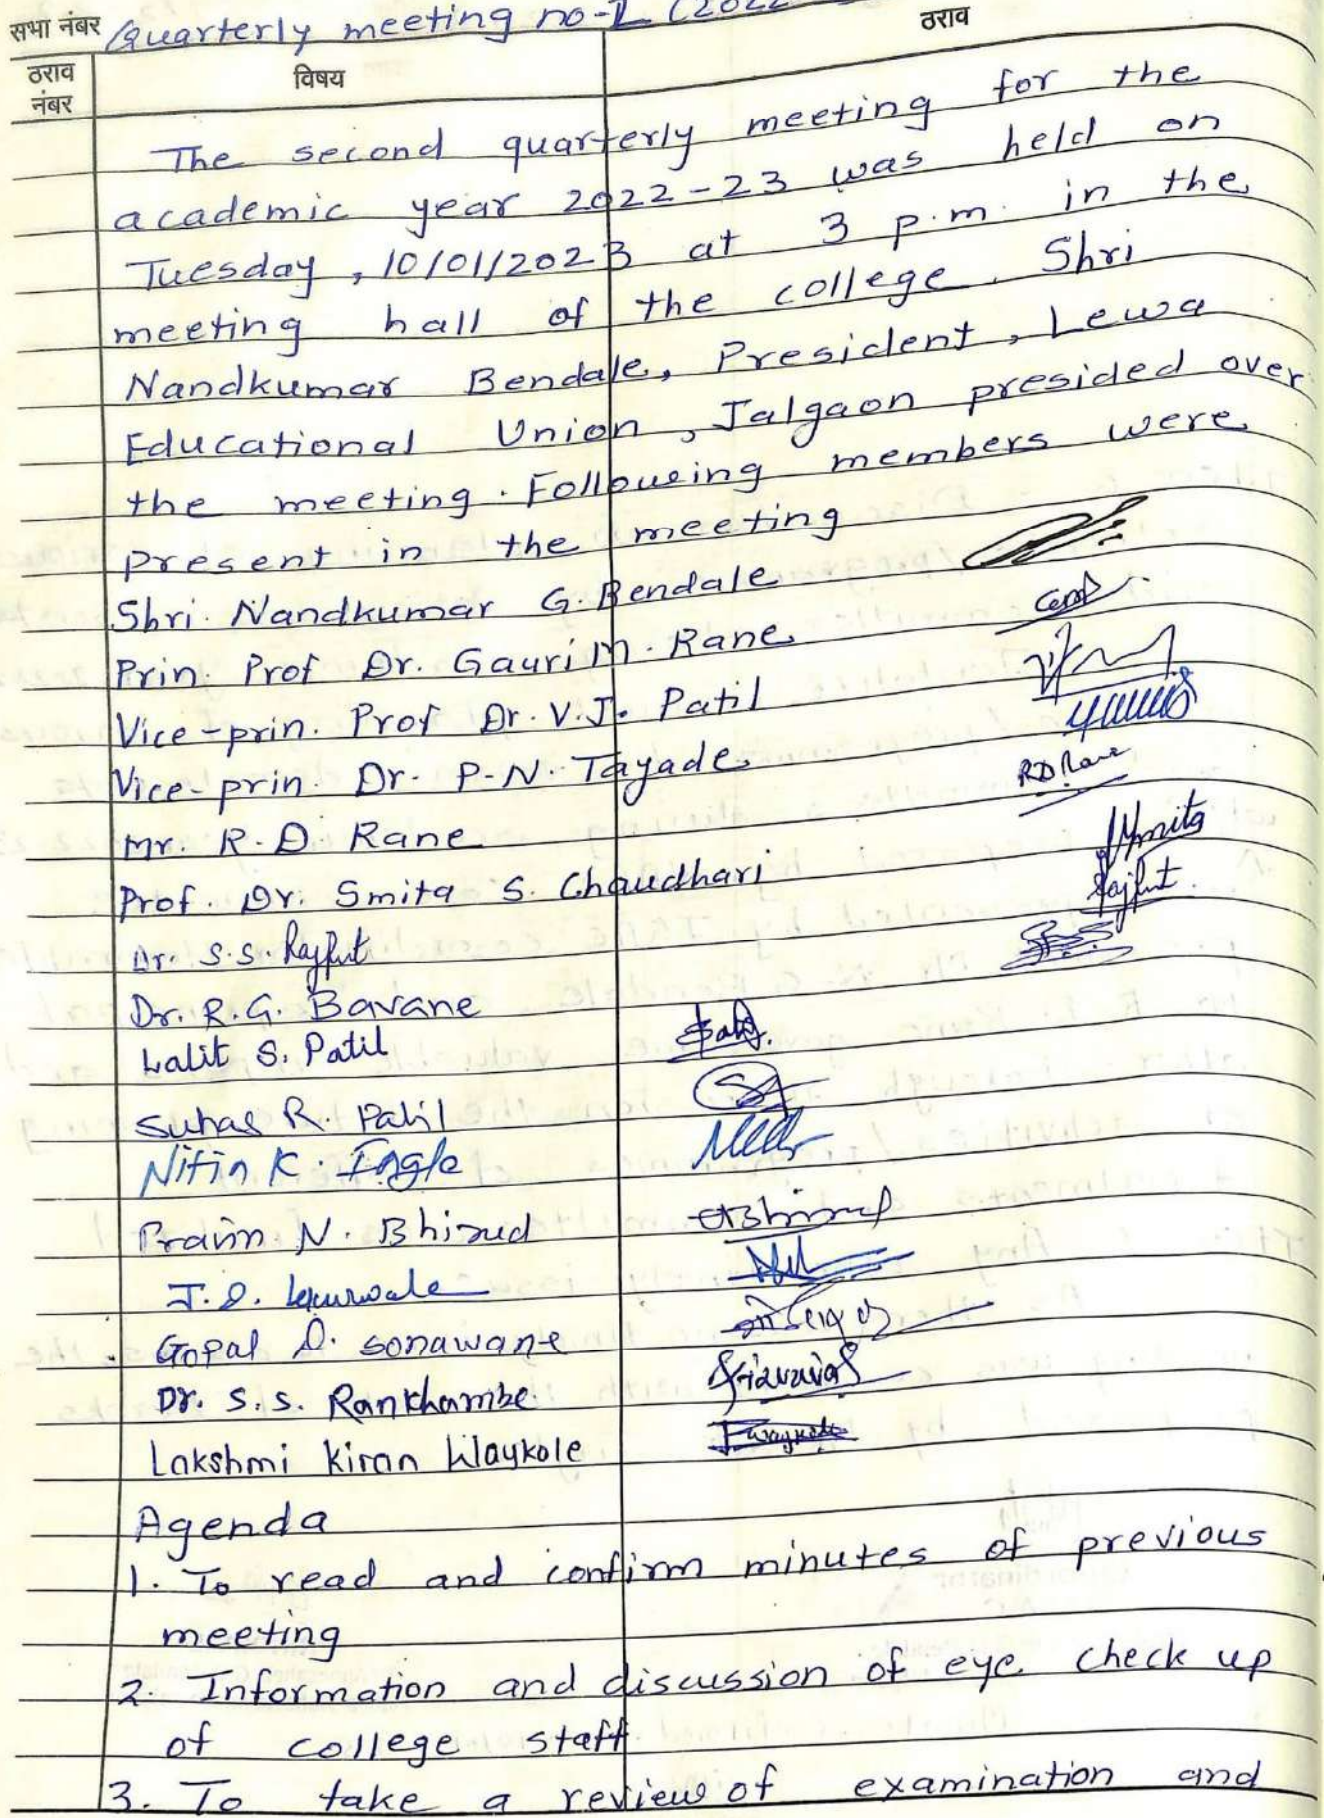 सभा नंबर Quarterly meeting no-2 (2022
ठराव
ठराव नंबर
विषय
The second quarterly meeting for the
academic year 2022-23 was held on
Tuesday, 10/01/2023 at 3 p.m. in the
meeting hall of the college. Shri
Nandkumar Bendale, President, Lewa
Educational Union, Jalgaon presided over
the meeting. Following members were
present in the meeting
Shri. Nandkumar G. Bendale
Prin. Prof Dr. Gauri M. Rane
Vice-prin. Prof Dr. V.J. Patil
Vice-prin. Dr. P.N. Tayade
Mr. R.D. Rane RDRane
Prof. Dr. Smita S. Chaudhari Smita
Dr. S.S. Rajput Rajput
Dr. R.G. Bavane
Lalit S. Patil
Suhas R. Patil
Nitin K. Ingle
Pravin N. Bhirud
J.D.
Gopal D. Sonawane
Dr. S.S. Rankhambe
Lakshmi Kiran Waykole
Agenda
1. To read and confirm minutes of previous
meeting
2. Information and discussion of eye check up
of college staff
3. To take a review of examination and